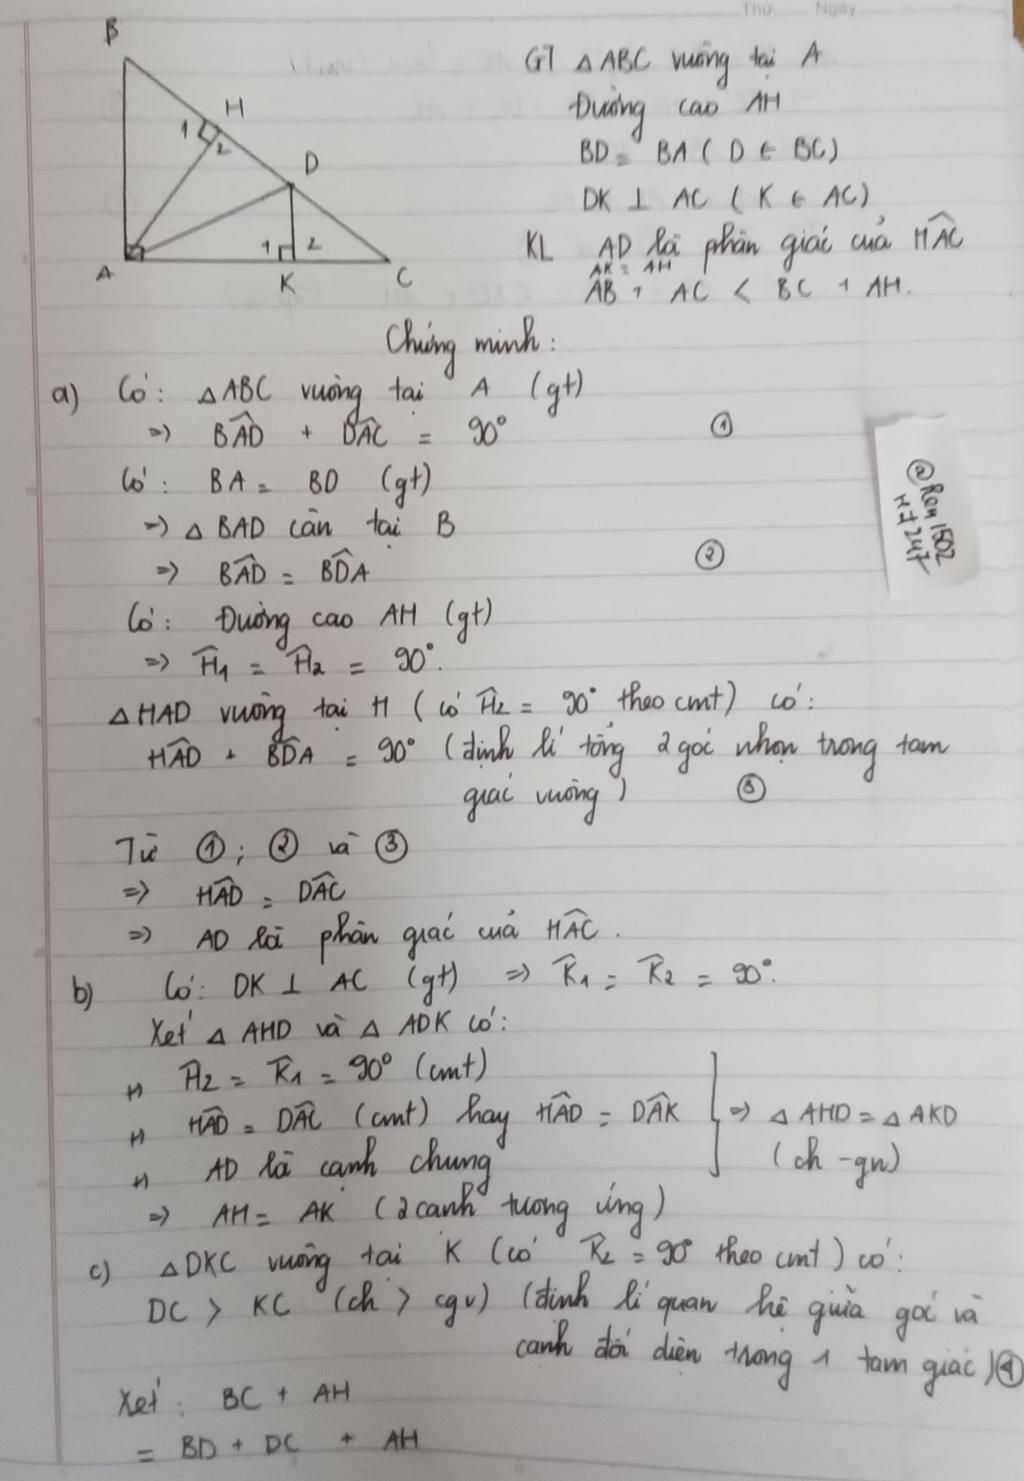 Thứ ...... Ngày
B
H
1
2
D
1
2
A
K
C
GT △ABC vuông tại A
Đường cao AH
BD = BA ( D ∈ BC)
DK ⊥ AC ( K ∈ AC)
KL AD là phân giác của HAC^
AK = AH
AB + AC < BC + AH.
Chứng minh:
a) Có: △ABC vuông tại A (gt)
=> BAD^ + DAC^ = 90° ①
Có: BA = BD (gt)
=> △ BAD cân tại B
=> BAD^ = BDA^ ②
Có: Đường cao AH (gt)
=> H1^ = H2^ = 90°.
△HAD vuông tại H ( có H2^ = 90° theo cmt) có:
HAD^ + BDA^ = 90° (định lí tổng 2 góc nhọn trong tam
giác vuông) ③
Từ ①; ② và ③
=> HAD^ = DAC^
=> AD là phân giác của HAC^.
b) Có: DK ⊥ AC (gt) => K1^ = K2^ = 90°.
Xét △ AHD và △ ADK có:
H2^ = K1^ = 90° (cmt)
HAD^ = DAC^ (cmt) hay HAD^ = DAK^ => △ AHD = △ AKD
AD là cạnh chung (ch - gn)
=> AH = AK (2 cạnh tương ứng)
c) △DKC vuông tại K (có K2^ = 90° theo cmt) có:
DC > KC (ch > cgv) (định lí quan hệ giữa góc và
cạnh đối diện trong 1 tam giác) ④
Xét: BC + AH
= BD + DC + AH
@Ren1502
H7247